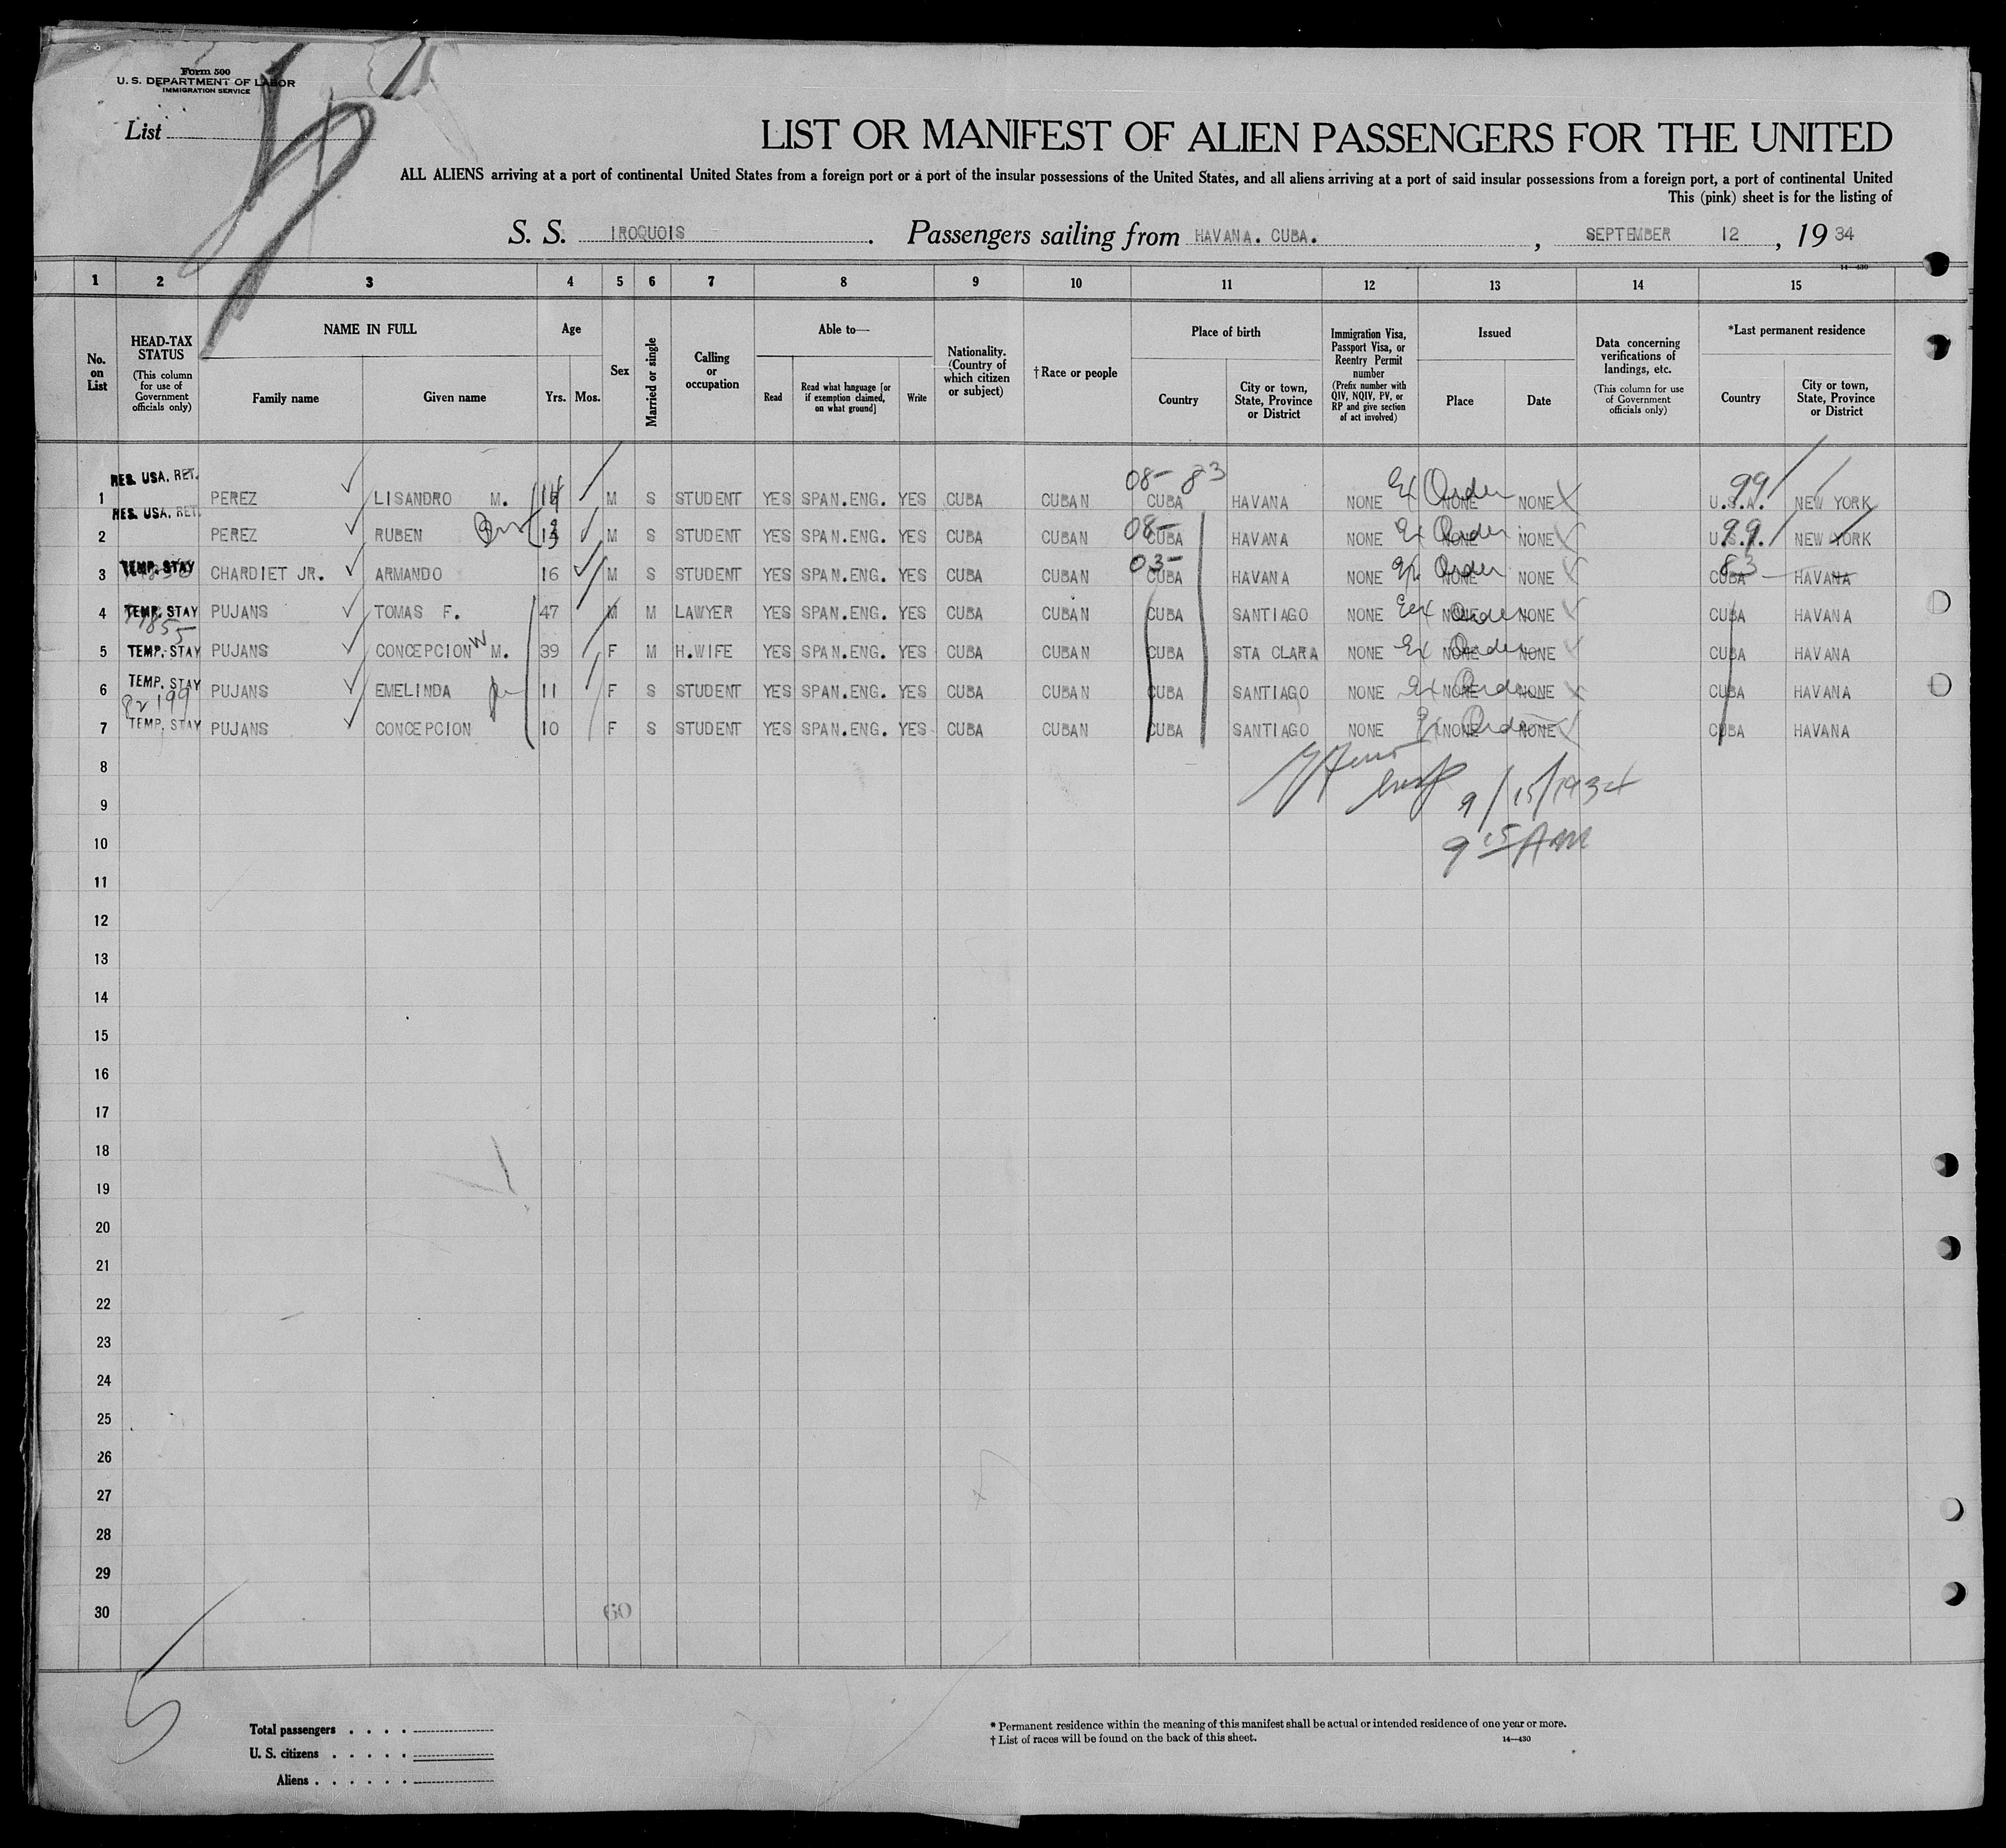 Form 500
U. S. DEPARTMENT OF LABOR
IMMIGRATION SERVICE
List
LIST OR MANIFEST OF ALIEN PASSENGERS FOR THE UNITED
ALL ALIENS arriving at a port of continental United States from a foreign port or a port of the insular possessions of the United States, and all aliens arriving at a port of said insular possessions from a foreign port, a port of continental United
This (pink) sheet is for the listing of
S. S. IROQUOIS . Passengers sailing from HAVANA. CUBA. , SEPTEMBER 12 , 19 34
14—430
1 2 3 4 5 6 7 8 9 10 11 12 13 14 15
No. on List
HEAD-TAX STATUS
(This column for use of Government officials only)
NAME IN FULL
Family name
Given name
Age
Yrs. Mos.
Sex
Married or single
Calling or occupation
Able to—
Read
Read what language [or if exemption claimed, on what ground]
Write
Nationality. (Country of which citizen or subject)
† Race or people
Place of birth
Country
City or town, State, Province or District
Immigration Visa, Passport Visa, or Reentry Permit number
(Prefix number with QIV, NQIV, PV, or RP and give section of act involved)
Issued
Place
Date
Data concerning verifications of landings, etc.
(This column for use of Government officials only)
*Last permanent residence
Country
City or town, State, Province or District
08- 83 99
RES. USA. RET.
1 PEREZ LISANDRO M. M S STUDENT YES SPAN.ENG. YES CUBA CUBAN CUBA HAVANA NONE Ex Order NONE NONE U.S.A. NEW YORK
RES. USA. RET.
2 PEREZ RUBEN M S STUDENT YES SPAN.ENG. YES CUBA CUBAN 08- CUBA HAVANA NONE Ex Order NONE NONE 99 U.S.A. NEW YORK
TEMP. STAY
3 CHARDIET JR. ARMANDO 16 M S STUDENT YES SPAN.ENG. YES CUBA CUBAN 03- CUBA HAVANA NONE Ex Order NONE NONE 83 CUBA HAVANA
4 TEMP. STAY PUJANS TOMAS F. 47 M M LAWYER YES SPAN.ENG. YES CUBA CUBAN CUBA SANTIAGO NONE Ex Order NONE NONE CUBA HAVANA
5 TEMP. STAY PUJANS CONCEPCION W M. 39 F M H.WIFE YES SPAN.ENG. YES CUBA CUBAN CUBA STA CLARA NONE Ex Order NONE NONE CUBA HAVANA
6 TEMP. STAY PUJANS EMELINDA 11 F S STUDENT YES SPAN.ENG. YES CUBA CUBAN CUBA SANTIAGO NONE Ex Order NONE NONE CUBA HAVANA
7 TEMP. STAY PUJANS CONCEPCION 10 F S STUDENT YES SPAN.ENG. YES CUBA CUBAN CUBA SANTIAGO NONE Ex Order NONE NONE CUBA HAVANA
8
9 9/15/1934
10 9 15 AM
11
12
13
14
15
16
17
18
19
20
21
22
23
24
25
26
27
28
29
30 60
5
Total passengers . . . .
U. S. citizens . . . . .
Aliens . . . . . .
* Permanent residence within the meaning of this manifest shall be actual or intended residence of one year or more.
† List of races will be found on the back of this sheet.
14—430